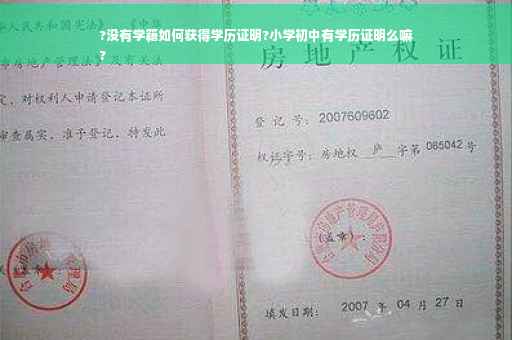 ?没有学籍如何获得学历证明?小学初中有学历证明么嘛
?
人民共和国宪法》《中华
房地产管理法》及有关法
定，对权利人申请登记本证所
审查属实，准予登记，特发此
房地产权证
登记号：2007609602
权证字号：房地权 庐 字第 085042 号
（盖章）：
填发日期：2007 年 04 月 27 日